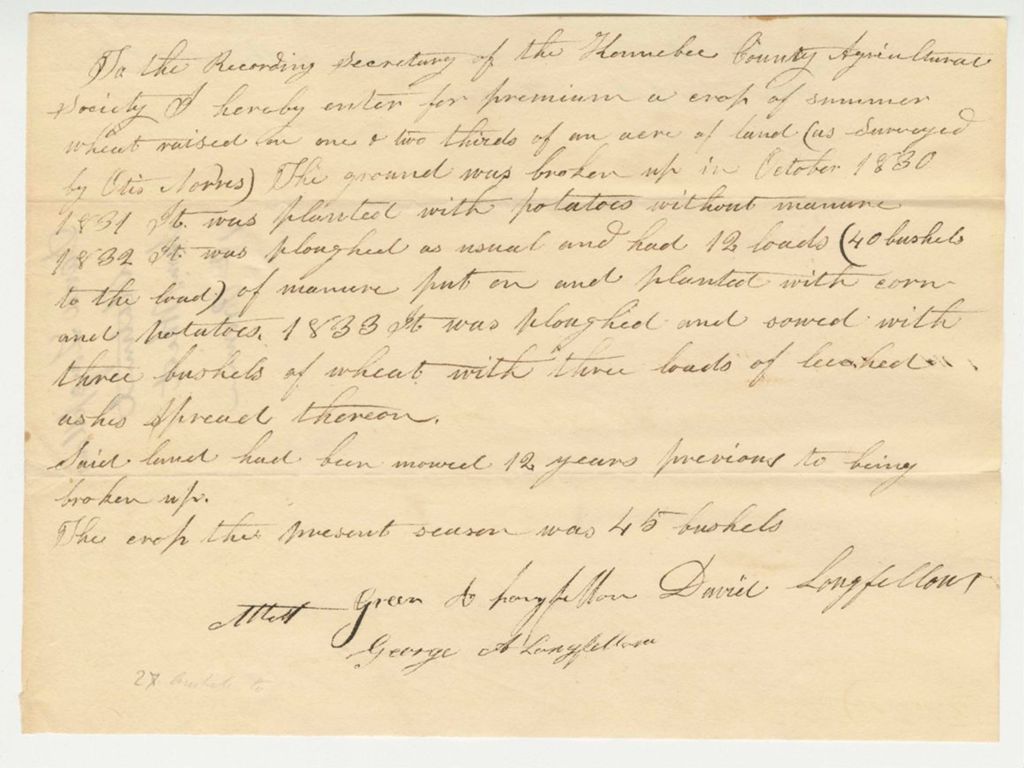 To the Recording Secretary of the Kennebec County Agricultural
Society I hereby enter for premium a crop of summer
wheat raised on one & two thirds of an acre of land (as Surveyed
by Otis Norris) The ground was broken up in October 1830
1831 It was planted with potatoes without manure
1832 It was ploughed as usual and had 12 loads (40 bushels
to the load) of manure put on and planted with corn
and potatoes. 1833 It was ploughed and sowed with
three bushels of wheat with three loads of leached
ashes spread thereon.
Said land had been mowed 12 years previous to being
broken up.
The crop the present season was 45 bushels
David Longfellow
Attest Green A Longfellow
George A Longfellow
27 bushels to